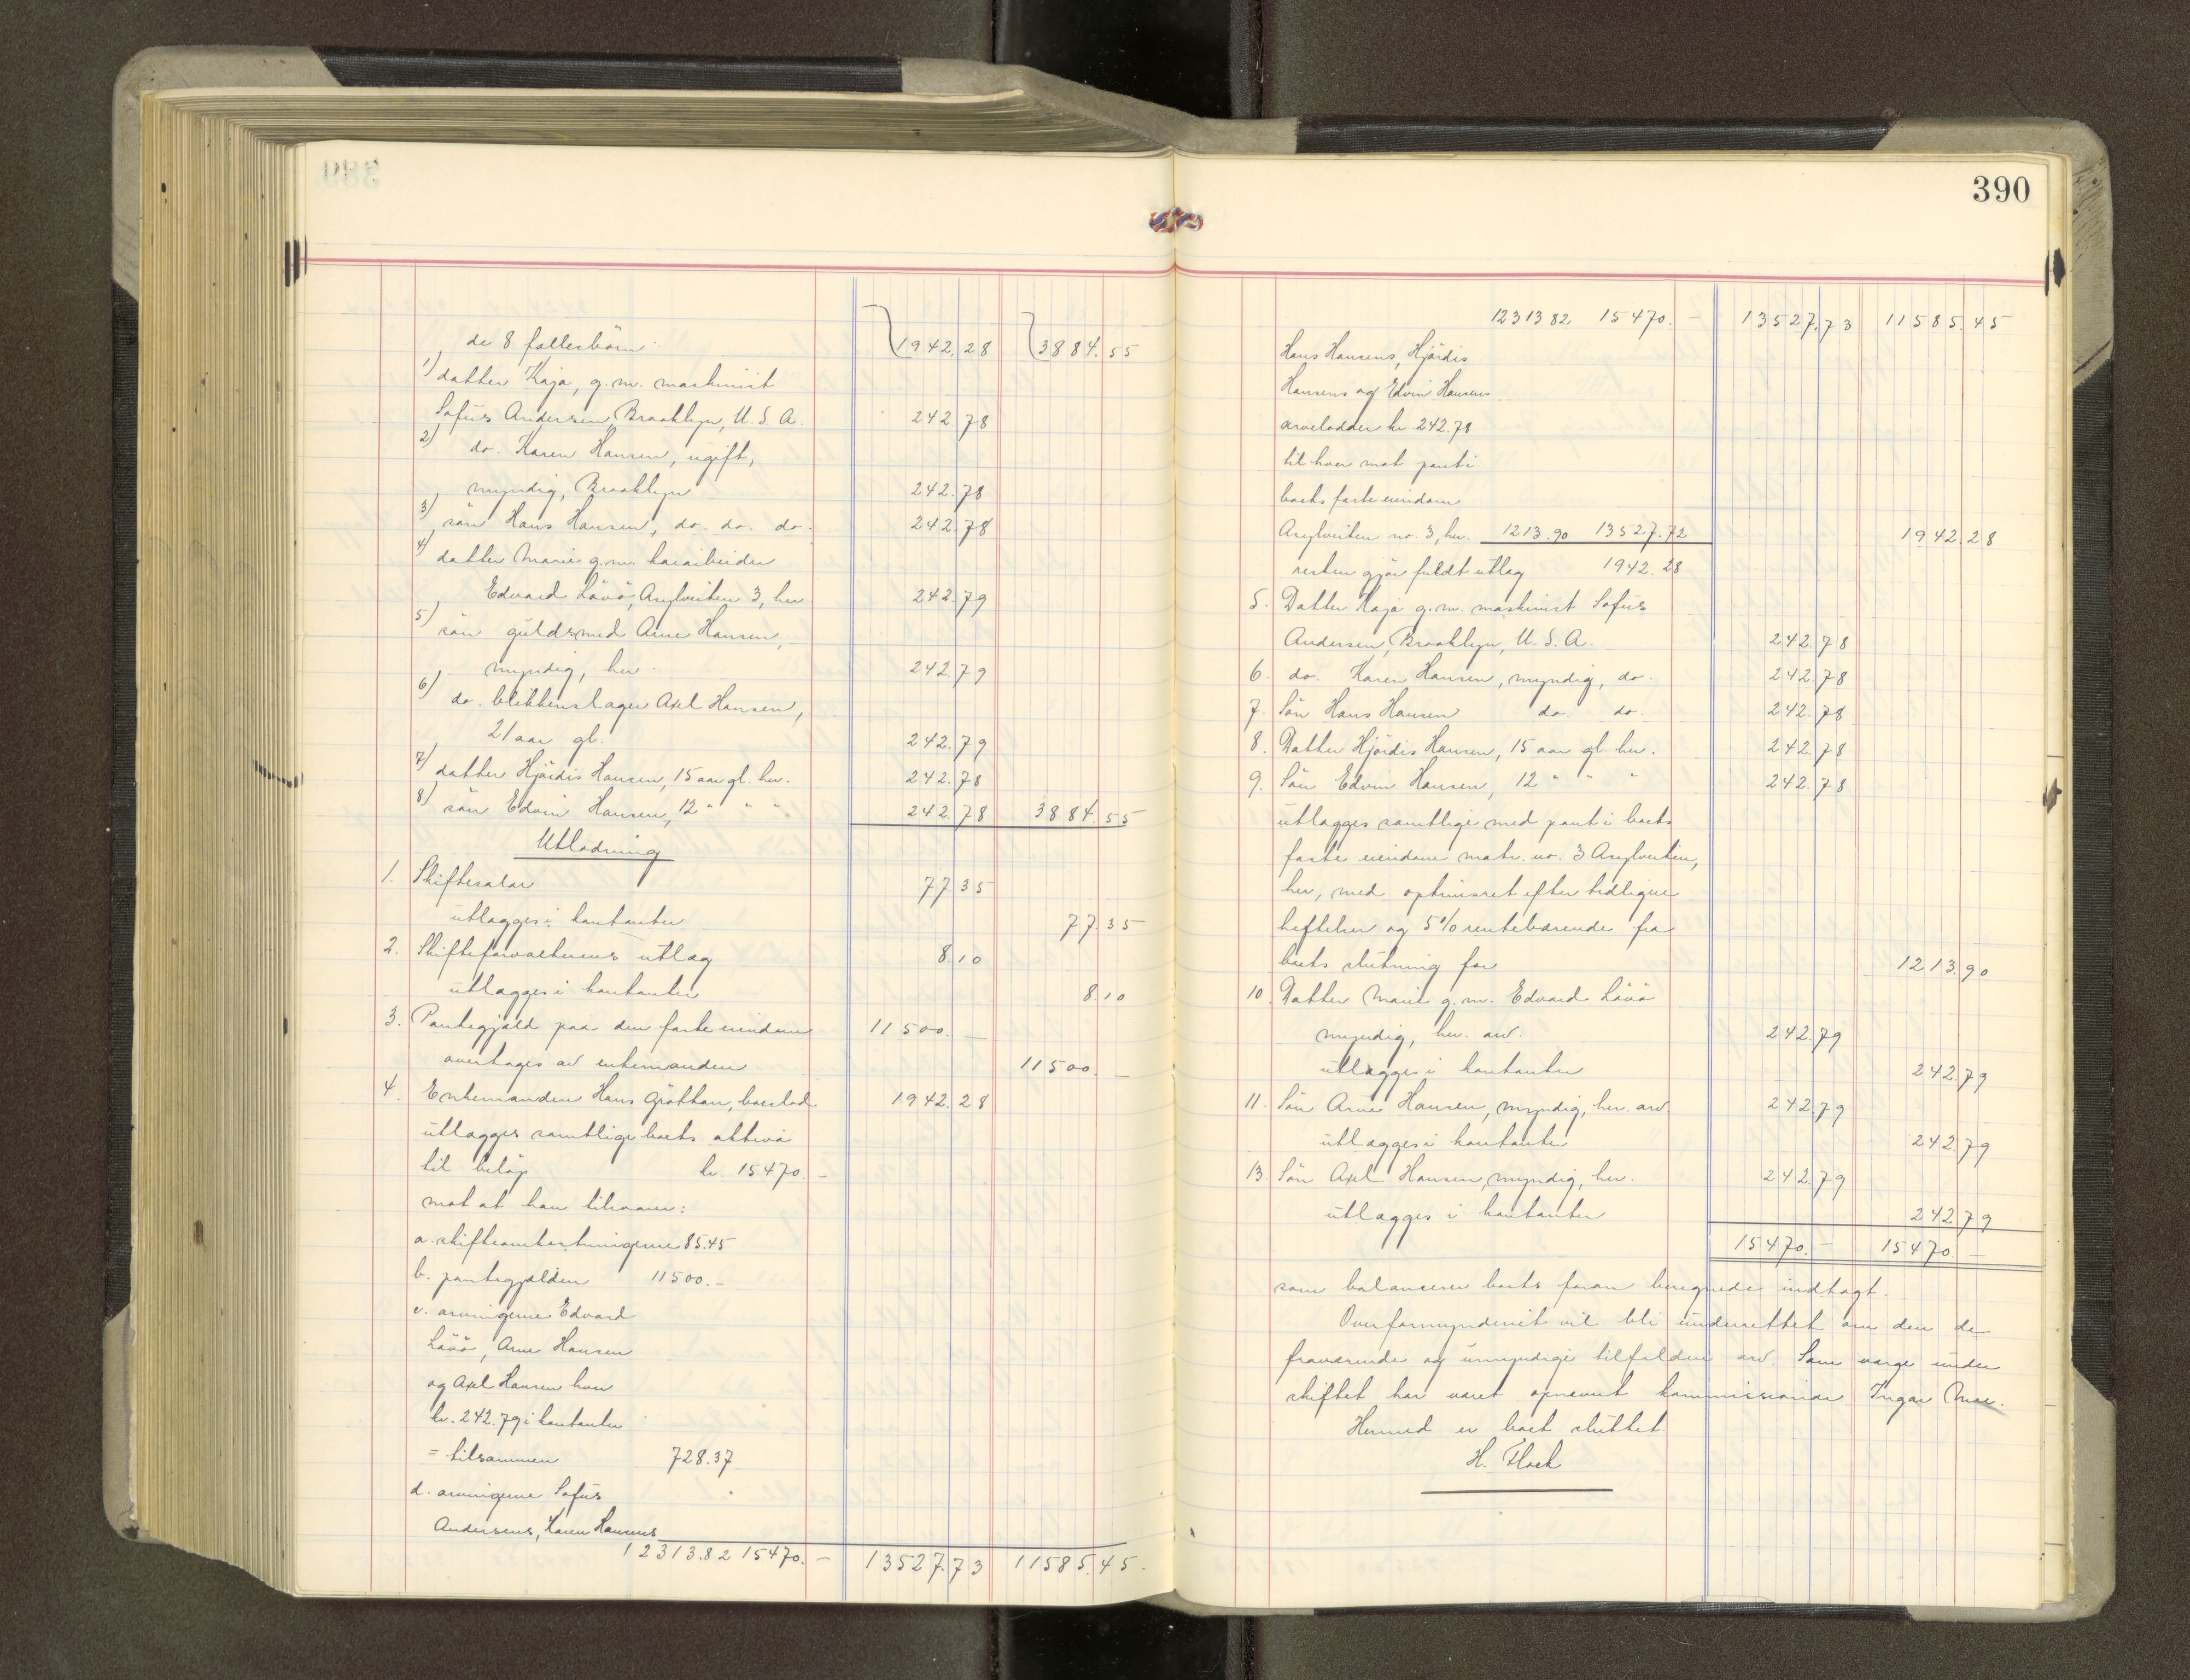 389
de 8 fællesbörn: 1942.28 3884.55
1) datter Kaja, g.m. maskinist
Sofus Andersen, Brooklyn, U.S.A. 242.78
2) do. Karen Hansen, ugift,
myndig, Brooklyn 242.78
3) sön Hans Hansen, do. do. do. 242.78
4) datter Marie g.m. havnarbeider
Edvard Lövö, Asylveiten 3, her 242.79
5) sön guldsmed Arne Hansen,
myndig, her. 242.79
6) do. blikkenslager Axel Hansen,
21 aar gl. 242.79
7) datter Hjördis Hansen, 15 aar gl. her. 242.78
8) sön Edvin Hansen, 12 " " " 242.78 3884.55
Utlodning
1. Skiftesalær 77.35
utlægges i kontanter 77.35
2. Skifteforvalterens utlæg 8.10
utlægges i kontanter 8.10
3. Pantegjæld paa den faste eiendom 11500.—
overtages av enkemanden 11500.—
4. Enkemanden Hans Gröttan, boeslod 1942.28
utlægges samtlige boets aktiva
til beløp kr. 15470.—
mot at han tilsvarer:
a. skifteomkostningerne 85.45
b. pantegjælden 11500.—
c. arvingerne Edvard
Lövö, Arne Hansen
og Axel Hansen hver
kr. 242.79 i kontanter
= tilsammen 728.37
d. arvingerne Sofus
Andersens, Karen Hansens
12313.82 15470.— 13527.73 11585.45
390
12313 82 15470.— 13527.73 11585.45
Hans Hansens, Hjördis
Hansens og Edvin Hansens
arvelodder kr. 242.78
til hver mot pant i
boets faste eiendom
Asylveiten no. 3, her. 1213.90 13527.72 1942.28
resten gjör fuldt utlæg 1942.28
5. Datter Kaja g.m. maskinist Sofus
Andersen, Brooklyn, U.S.A. 242.78
6. do. Karen Hansen, myndig, do. 242.78
7. Sön Hans Hansen do. do. 242.78
8. Datter Hjördis Hansen, 15 aar gl. her. 242.78
9. Sön Edvin Hansen, 12 " " " 242.78
utlægges samtlige med pant i boets
faste eiendom matr. no. 3 Asylveiten,
her, med optrinsret efter tidligere
heftelser og 5% rentebærende fra
boets slutning for 1213.90
10. Datter Marie g.m. Edvard Lövö
myndig, her. arv. 242.79
utlægges i kontanter 242.79
11. Sön Arne Hansen, myndig, her. arv. 242.79
utlægges i kontanter 242.79
13. Sön Axel Hansen, myndig, her. 242.79
utlægges i kontanter 242.79
15470.— 15470.—
som balanserer boets foran beregnede indtægt.
Overformynderiet vil bli underrettet om den de
fraværende og umyndige tilfaldne arv. Som værge under
skiftet har været opnævnt kommissionær Ingar Moe.
Hermed er boet sluttet.
H. Floch